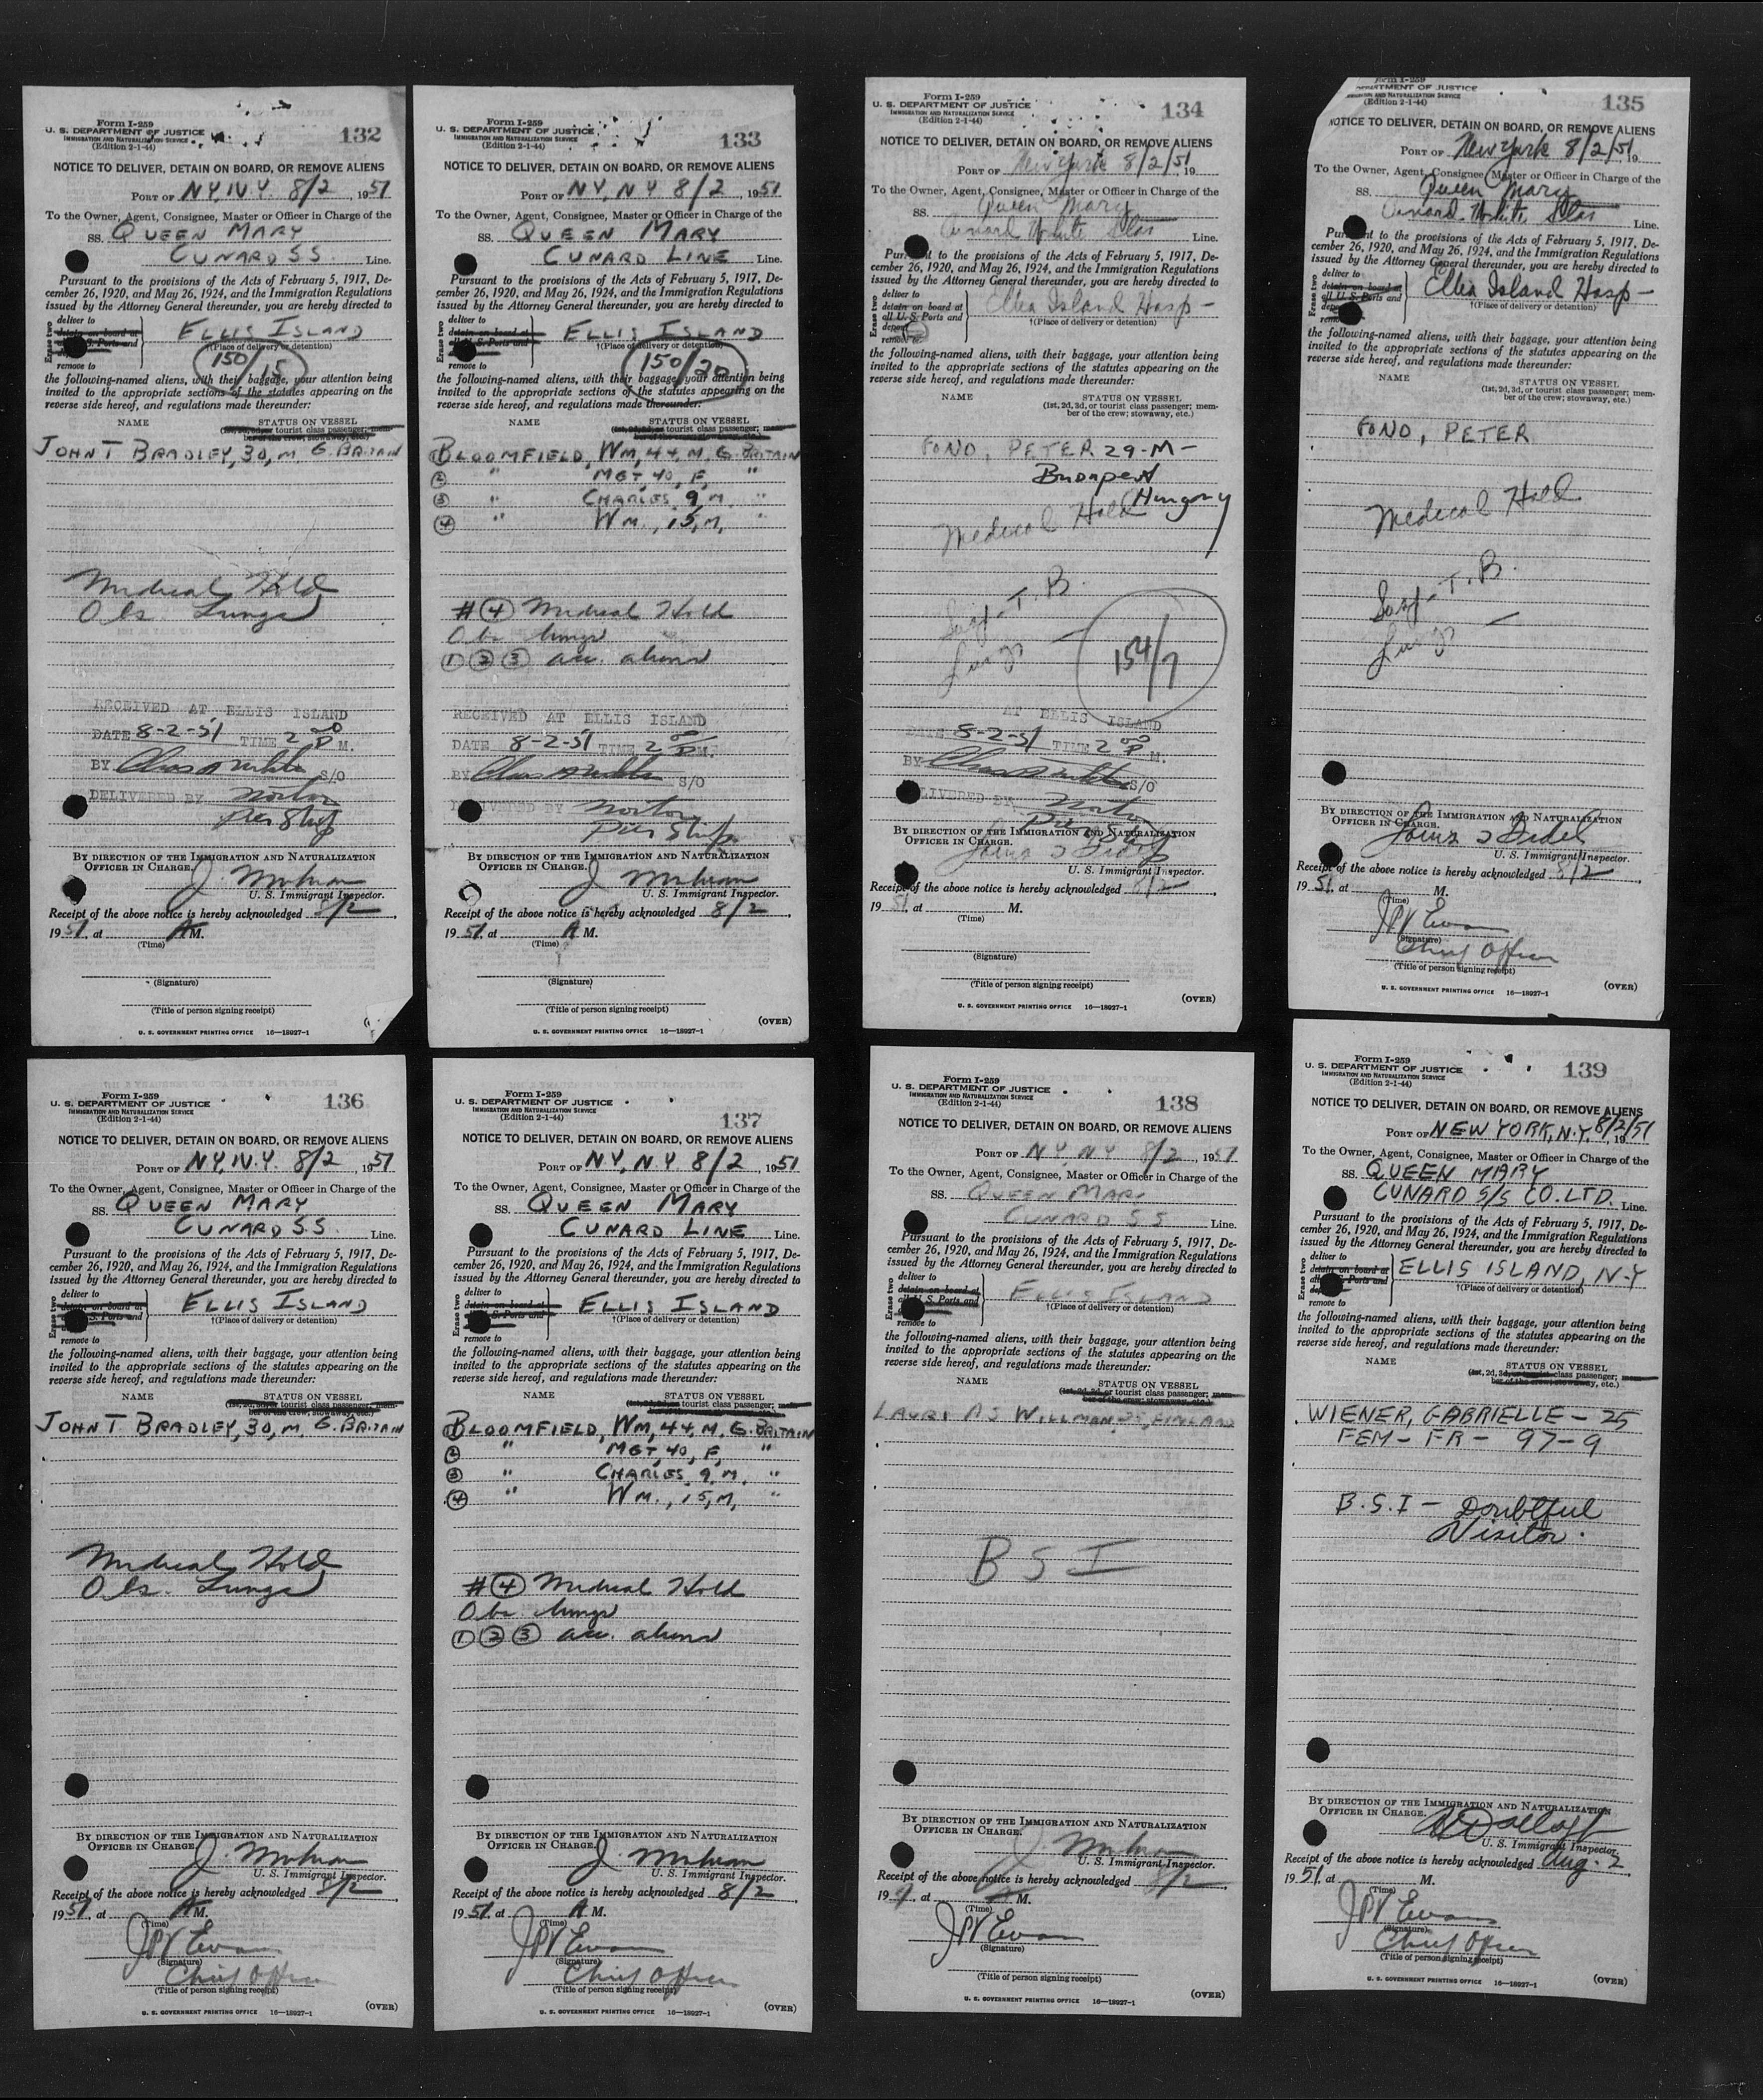 Form I-259
U. S. DEPARTMENT OF JUSTICE
IMMIGRATION AND NATURALIZATION SERVICE
(Edition 2-1-44)
132
NOTICE TO DELIVER, DETAIN ON BOARD, OR REMOVE ALIENS
PORT OF N.Y., N.Y. 8/2, 1951
To the Owner, Agent, Consignee, Master or Officer in Charge of the
SS. QUEEN MARY
CUNARD SS Line.
Pursuant to the provisions of the Acts of February 5, 1917, De-
cember 26, 1920, and May 26, 1924, and the Immigration Regulations
issued by the Attorney General thereunder, you are hereby directed to
Erase two
deliver to
detain on board at
S. Ports and
remove to
ELLIS ISLAND
†(Place of delivery or detention)
150/15
the following-named aliens, with their baggage, your attention being
invited to the appropriate sections of the statutes appearing on the
reverse side hereof, and regulations made thereunder:
NAME STATUS ON VESSEL
(1st, 2d, 3d, or tourist class passenger; mem-
ber of the crew; stowaway, etc.)
JOHN T BRADLEY, 30, M. G. BRITAIN
Medical Hold
Obs. Lungs
RECEIVED AT ELLIS ISLAND
DATE 8-2-51 TIME 2 00 P M.
BY S/O
DELIVERED BY Norton
Pier Shift
BY DIRECTION OF THE IMMIGRATION AND NATURALIZATION
OFFICER IN CHARGE.
U. S. Immigrant Inspector.
Receipt of the above notice is hereby acknowledged 8/2,
1951, at A M.
(Time)
(Signature)
(Title of person signing receipt)
U. S. GOVERNMENT PRINTING OFFICE 16—18927-1
Form I-259
U. S. DEPARTMENT OF JUSTICE
IMMIGRATION AND NATURALIZATION SERVICE
(Edition 2-1-44)
133
NOTICE TO DELIVER, DETAIN ON BOARD, OR REMOVE ALIENS
PORT OF N.Y, N.Y 8/2, 1951
To the Owner, Agent, Consignee, Master or Officer in Charge of the
SS. QUEEN MARY
CUNARD LINE Line.
Pursuant to the provisions of the Acts of February 5, 1917, De-
cember 26, 1920, and May 26, 1924, and the Immigration Regulations
issued by the Attorney General thereunder, you are hereby directed to
Erase two
deliver to
detain on board at
all U. S. Ports and
remove to
ELLIS ISLAND
†(Place of delivery or detention)
150/20
the following-named aliens, with their baggage, your attention being
invited to the appropriate sections of the statutes appearing on the
reverse side hereof, and regulations made thereunder:
NAME STATUS ON VESSEL
(1st, 2d, 3d, or tourist class passenger; mem-
① BLOOMFIELD, WM, 44, M, G. BRITAIN
② " MGT, 40, F, "
③ " CHARLES, 9, M, "
④ " WM., 15, M, "
#④ Medical Hold
Obs lungs
① ② ③ acc. aliens
RECEIVED AT ELLIS ISLAND
DATE 8-2-51 TIME 2 00 P M.
BY S/O
DELIVERED BY Norton
Pier Shift
BY DIRECTION OF THE IMMIGRATION AND NATURALIZATION
OFFICER IN CHARGE.
U. S. Immigrant Inspector.
Receipt of the above notice is hereby acknowledged 8/2,
1951, at A M.
(Time)
(Signature)
(Title of person signing receipt)
U. S. GOVERNMENT PRINTING OFFICE 16—18927-1
(OVER)
Form I-259
U. S. DEPARTMENT OF JUSTICE
IMMIGRATION AND NATURALIZATION SERVICE
(Edition 2-1-44)
134
NOTICE TO DELIVER, DETAIN ON BOARD, OR REMOVE ALIENS
PORT OF New York 8/2/51, 19
To the Owner, Agent, Consignee, Master or Officer in Charge of the
SS. Queen Mary
Cunard White Star Line.
Pursuant to the provisions of the Acts of February 5, 1917, De-
cember 26, 1920, and May 26, 1924, and the Immigration Regulations
issued by the Attorney General thereunder, you are hereby directed to
Erase two
deliver to
detain on board at
all U. S. Ports and
deport
remove to
Ellis Island Hosp -
†(Place of delivery or detention)
the following-named aliens, with their baggage, your attention being
invited to the appropriate sections of the statutes appearing on the
reverse side hereof, and regulations made thereunder:
NAME STATUS ON VESSEL
(1st, 2d, 3d, or tourist class passenger; mem-
ber of the crew; stowaway, etc.)
FONO, PETER 29-M-
Budapest
Hungary
Medical Hold
Susp - T. B.
Lungs -
154/7
AT ELLIS ISLAND
DATE 8-2-51 TIME 2 00 P M.
BY S/O
DELIVERED BY
BY DIRECTION OF THE IMMIGRATION AND NATURALIZATION
OFFICER IN CHARGE.
U. S. Immigrant Inspector.
Receipt of the above notice is hereby acknowledged 8/2,
1951, at M.
(Time)
(Signature)
(Title of person signing receipt)
U. S. GOVERNMENT PRINTING OFFICE 16—18927-1
(OVER)
Form I-259
DEPARTMENT OF JUSTICE
IMMIGRATION AND NATURALIZATION SERVICE
(Edition 2-1-44)
135
NOTICE TO DELIVER, DETAIN ON BOARD, OR REMOVE ALIENS
PORT OF New York 8/2/51, 19
To the Owner, Agent, Consignee, Master or Officer in Charge of the
SS. Queen Mary
Cunard White Star Line.
Pursuant to the provisions of the Acts of February 5, 1917, De-
cember 26, 1920, and May 26, 1924, and the Immigration Regulations
issued by the Attorney General thereunder, you are hereby directed to
Erase two
deliver to
detain on board at
all U. S. Ports and
deport
remove to
Ellis Island Hosp -
†(Place of delivery or detention)
the following-named aliens, with their baggage, your attention being
invited to the appropriate sections of the statutes appearing on the
reverse side hereof, and regulations made thereunder:
NAME STATUS ON VESSEL
(1st, 2d, 3d, or tourist class passenger; mem-
ber of the crew; stowaway, etc.)
FONO, PETER
Medical Hold
Susp - T. B.
Lungs -
BY DIRECTION OF THE IMMIGRATION AND NATURALIZATION
OFFICER IN CHARGE.
U. S. Immigrant Inspector.
Receipt of the above notice is hereby acknowledged 8/2
1951, at M.
(Time)
JPV Evans
(Signature)
Chief Officer
(Title of person signing receipt)
U. S. GOVERNMENT PRINTING OFFICE 16—18927-1
(OVER)
Form I-259
U. S. DEPARTMENT OF JUSTICE
IMMIGRATION AND NATURALIZATION SERVICE
(Edition 2-1-44)
136
NOTICE TO DELIVER, DETAIN ON BOARD, OR REMOVE ALIENS
PORT OF N.Y., N.Y. 8/2, 1951
To the Owner, Agent, Consignee, Master or Officer in Charge of the
SS. QUEEN MARY
CUNARD SS Line.
Pursuant to the provisions of the Acts of February 5, 1917, De-
cember 26, 1920, and May 26, 1924, and the Immigration Regulations
issued by the Attorney General thereunder, you are hereby directed to
Erase two
deliver to
detain on board at
S. Ports and
remove to
ELLIS ISLAND
†(Place of delivery or detention)
the following-named aliens, with their baggage, your attention being
invited to the appropriate sections of the statutes appearing on the
reverse side hereof, and regulations made thereunder:
NAME STATUS ON VESSEL
(1st, 2d, 3d, or tourist class passenger; mem-
ber of the crew; stowaway, etc.)
JOHN T. BRADLEY, 30, M. G. BRITAIN
Medical Hold
Obs. Lungs
BY DIRECTION OF THE IMMIGRATION AND NATURALIZATION
OFFICER IN CHARGE.
U. S. Immigrant Inspector.
Receipt of the above notice is hereby acknowledged 8/2,
1951, at A M.
(Time)
JPV Evans
(Signature)
Chief Officer
(Title of person signing receipt)
U. S. GOVERNMENT PRINTING OFFICE 16—18927-1
(OVER)
Form I-259
U. S. DEPARTMENT OF JUSTICE
IMMIGRATION AND NATURALIZATION SERVICE
(Edition 2-1-44)
137
NOTICE TO DELIVER, DETAIN ON BOARD, OR REMOVE ALIENS
PORT OF N.Y, N.Y 8/2, 1951
To the Owner, Agent, Consignee, Master or Officer in Charge of the
SS. QUEEN MARY
CUNARD LINE Line.
Pursuant to the provisions of the Acts of February 5, 1917, De-
cember 26, 1920, and May 26, 1924, and the Immigration Regulations
issued by the Attorney General thereunder, you are hereby directed to
Erase two
deliver to
detain on board at
S. Ports and
remove to
ELLIS ISLAND
†(Place of delivery or detention)
the following-named aliens, with their baggage, your attention being
invited to the appropriate sections of the statutes appearing on the
reverse side hereof, and regulations made thereunder:
NAME STATUS ON VESSEL
(1st, 2d, 3d, or tourist class passenger; mem-
① BLOOMFIELD, WM, 44, M, G. BRITAIN
② " MGT, 40, F, "
③ " CHARLES, 9, M, "
④ " WM., 15, M, "
#④ Medical Hold
Obs lungs
① ② ③ acc. aliens
BY DIRECTION OF THE IMMIGRATION AND NATURALIZATION
OFFICER IN CHARGE.
U. S. Immigrant Inspector.
Receipt of the above notice is hereby acknowledged 8/2,
1951, at A M.
(Time)
JPV Evans
(Signature)
Chief Officer
(Title of person signing receipt)
U. S. GOVERNMENT PRINTING OFFICE 16—18927-1
(OVER)
Form I-259
U. S. DEPARTMENT OF JUSTICE
IMMIGRATION AND NATURALIZATION SERVICE
(Edition 2-1-44)
138
NOTICE TO DELIVER, DETAIN ON BOARD, OR REMOVE ALIENS
PORT OF N.Y, N.Y 8/2, 1951
To the Owner, Agent, Consignee, Master or Officer in Charge of the
SS. QUEEN MARY
CUNARD SS Line.
Pursuant to the provisions of the Acts of February 5, 1917, De-
cember 26, 1920, and May 26, 1924, and the Immigration Regulations
issued by the Attorney General thereunder, you are hereby directed to
Erase two
deliver to
detain on board at
all U. S. Ports and
remove to
ELLIS ISLAND
†(Place of delivery or detention)
the following-named aliens, with their baggage, your attention being
invited to the appropriate sections of the statutes appearing on the
reverse side hereof, and regulations made thereunder:
NAME STATUS ON VESSEL
(1st, 2d, 3d, or tourist class passenger; mem-
ber of the crew; stowaway, etc.)
LAURI AJ WILLMAN, 25, FINLAND
B S I
BY DIRECTION OF THE IMMIGRATION AND NATURALIZATION
OFFICER IN CHARGE.
U. S. Immigrant Inspector.
Receipt of the above notice is hereby acknowledged 8/2,
195, at M.
(Time)
JPV Evans
(Signature)
(Title of person signing receipt)
U. S. GOVERNMENT PRINTING OFFICE 16—18927-1
(OVER)
Form I-259
U. S. DEPARTMENT OF JUSTICE
IMMIGRATION AND NATURALIZATION SERVICE
(Edition 2-1-44)
139
NOTICE TO DELIVER, DETAIN ON BOARD, OR REMOVE ALIENS
PORT OF NEW YORK, N.Y. 8/2/51, 19
To the Owner, Agent, Consignee, Master or Officer in Charge of the
SS. QUEEN MARY
CUNARD S/S CO. LTD. Line.
Pursuant to the provisions of the Acts of February 5, 1917, De-
cember 26, 1920, and May 26, 1924, and the Immigration Regulations
issued by the Attorney General thereunder, you are hereby directed to
Erase two
deliver to
detain on board at
all U. S. Ports and
remove to
ELLIS ISLAND, N.Y
†(Place of delivery or detention)
the following-named aliens, with their baggage, your attention being
invited to the appropriate sections of the statutes appearing on the
reverse side hereof, and regulations made thereunder:
NAME STATUS ON VESSEL
(1st, 2d, 3d, or tourist class passenger; mem-
ber of the crew; stowaway, etc.)
WIENER, GABRIELLE - 25
FEM - FR - 97-9
B.S.I - Doubtful
Visitor.
BY DIRECTION OF THE IMMIGRATION AND NATURALIZATION
OFFICER IN CHARGE.
U. S. Immigrant Inspector.
Receipt of the above notice is hereby acknowledged Aug. 2
1951, at M.
(Time)
JPV Evans
(Signature)
Chief Officer
(Title of person signing receipt)
U. S. GOVERNMENT PRINTING OFFICE 16—18927-1
(OVER)